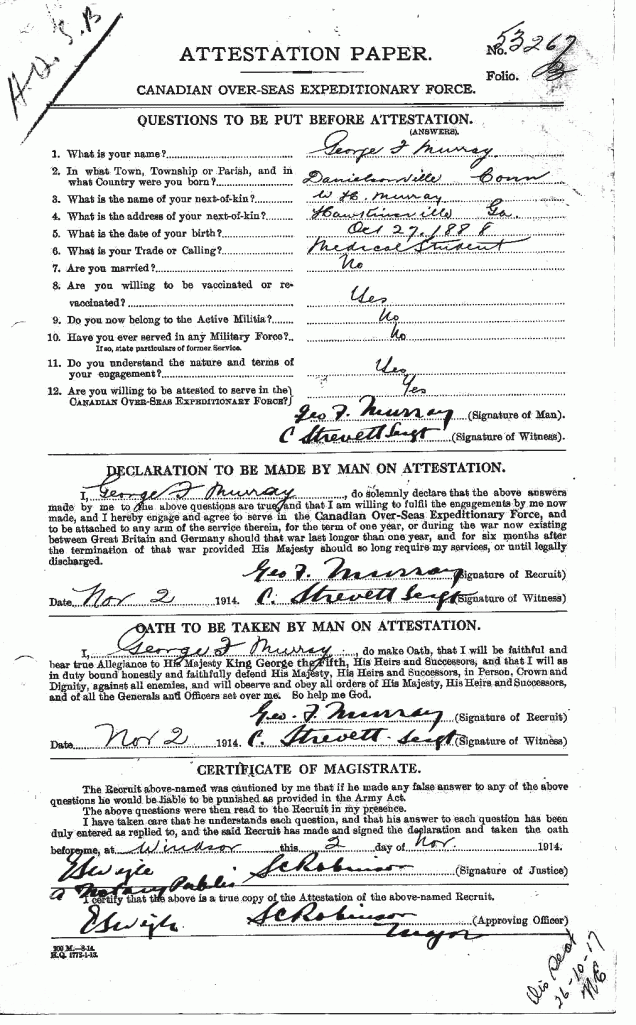 A.D.S.B
ATTESTATION PAPER.
No. 53267
Folio.
CANADIAN OVER-SEAS EXPEDITIONARY FORCE.
QUESTIONS TO BE PUT BEFORE ATTESTATION.
(ANSWERS).
1. What is your name? George F Murray
2. In what Town, Township or Parish, and in
what Country were you born? Danielsonville Conn
3. What is the name of your next-of-kin? W H. Murray
4. What is the address of your next-of-kin? Hawkinsville Ga.
5. What is the date of your birth? Oct 27. 1888
6. What is your Trade or Calling? Medical Student
7. Are you married? No
8. Are you willing to be vaccinated or re-
vaccinated? Yes
9. Do you now belong to the Active Militia? No
10. Have you ever served in any Military Force? No
If so, state particulars of former Service.
11. Do you understand the nature and terms of
your engagement? Yes
12. Are you willing to be attested to serve in the Yes
CANADIAN OVER-SEAS EXPEDITIONARY FORCE?
Geo F. Murray (Signature of Man).
C Strevett Sergt (Signature of Witness).
DECLARATION TO BE MADE BY MAN ON ATTESTATION.
I, George F Murray, do solemnly declare that the above answers
made by me to the above questions are true, and that I am willing to fulfil the engagements by me now
made, and I hereby engage and agree to serve in the Canadian Over-Seas Expeditionary Force, and
to be attached to any arm of the service therein, for the term of one year, or during the war now existing
between Great Britain and Germany should that war last longer than one year, and for six months after
the termination of that war provided His Majesty should so long require my services, or until legally
discharged.
Geo F. Murray (Signature of Recruit)
Date Nov 2 1914. C. Strevett Sergt (Signature of Witness)
OATH TO BE TAKEN BY MAN ON ATTESTATION.
I, George F Murray, do make Oath, that I will be faithful and
bear true Allegiance to His Majesty King George the Fifth, His Heirs and Successors, and that I will as
in duty bound honestly and faithfully defend His Majesty, His Heirs and Successors, in Person, Crown and
Dignity, against all enemies, and will observe and obey all orders of His Majesty, His Heirs and Successors,
and of all the Generals and Officers set over me. So help me God.
Geo. F. Murray (Signature of Recruit)
Date Nov 2 1914. C. Strevett Sergt (Signature of Witness)
CERTIFICATE OF MAGISTRATE.
The Recruit above-named was cautioned by me that if he made any false answer to any of the above
questions he would be liable to be punished as provided in the Army Act.
The above questions were then read to the Recruit in my presence.
I have taken care that he understands each question, and that his answer to each question has been
duly entered as replied to, and the said Recruit has made and signed the declaration and taken the oath
before me, at Windsor this 2 day of Nov. 1914.
E S Wigle S C Robinson (Signature of Justice)
a Notary Public
I certify that the above is a true copy of the Attestation of the above-named Recruit.
E S Wigle S C Robinson (Approving Officer)
Major
200 M.—8-14.
H.Q. 1772-1-13.
26-10-17